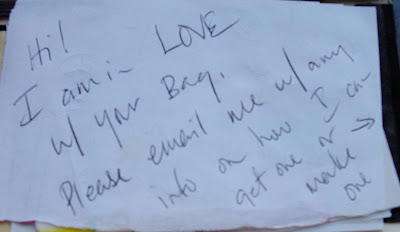 Hi!
I am in LOVE
w/ your Bag.
Please email me w/ any
info on how I can
get one or →
make
one